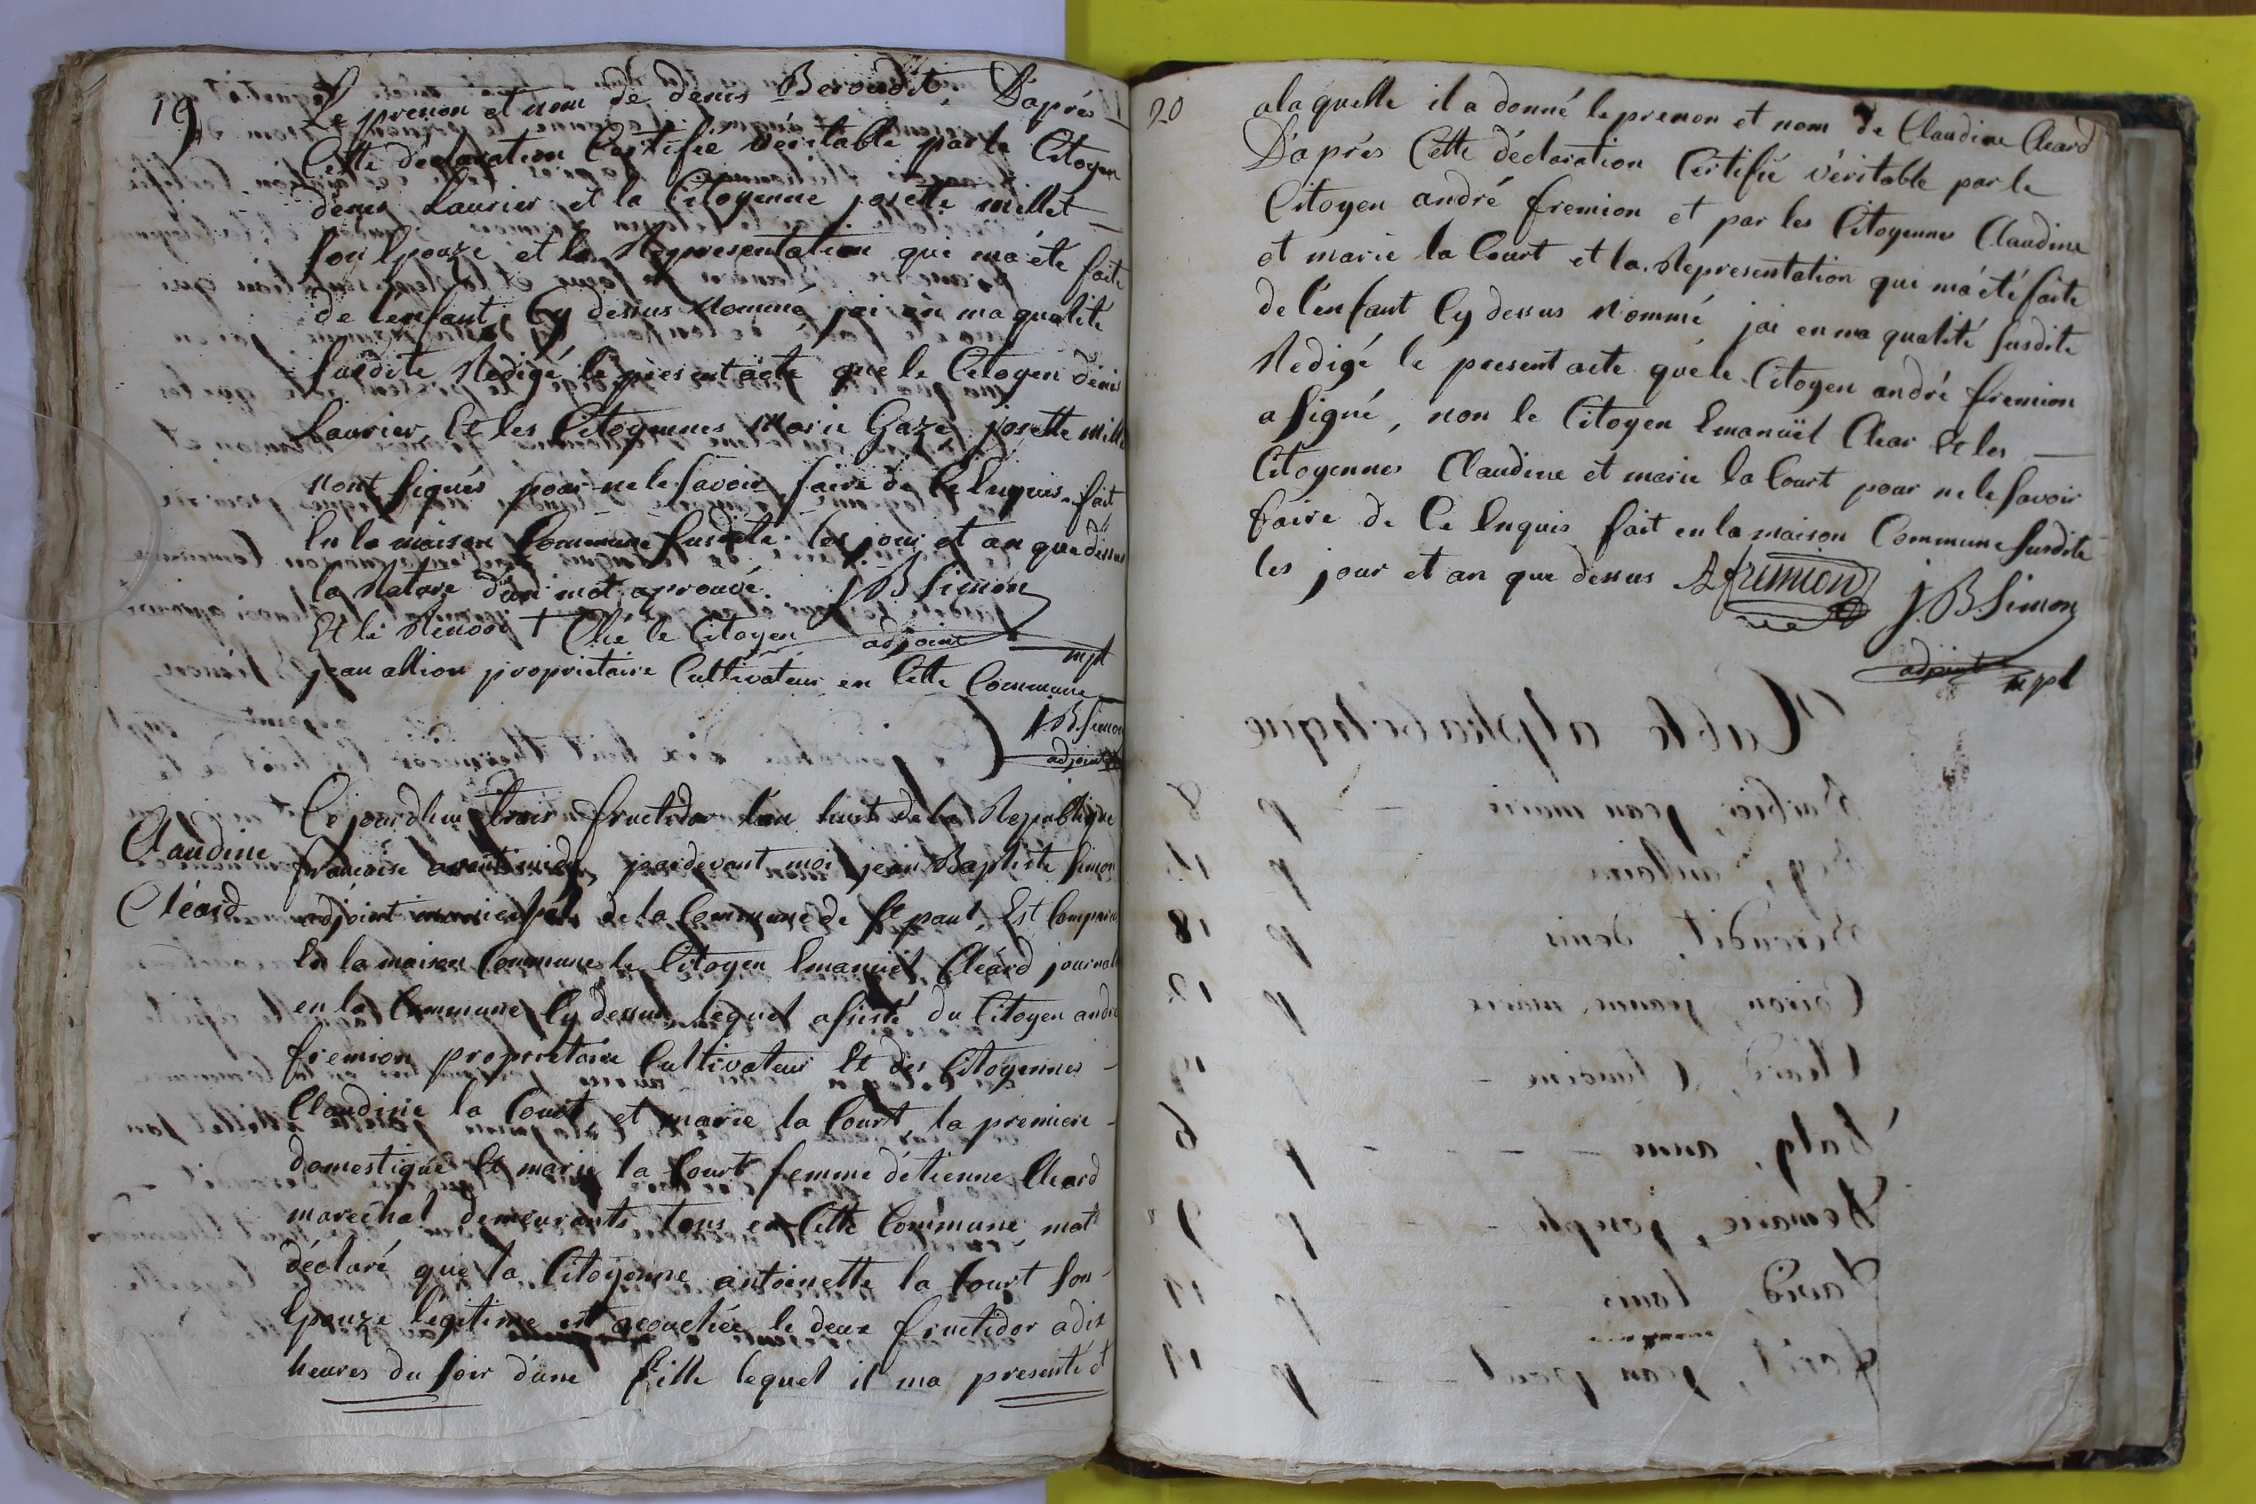 19
Le prenon et nom de denis Beroudit D'aprés
Cette déclaration Certifiée véritable par le Citoyen
denis Laurier et la Citoyenne josette millet
son Epouze et la Representation qui ma été faite
de lenfant Cy dessus Nommé jai en ma qualité
susdite Redigé le présent acte que le Citoyen dénis
Laurier Et les Citoyennes Marie Gaze josette mill
nont signés pour ne le savoir faire de Ce Enquis. fait
En la maison Commune susdite les jour et an que dessus
la Rature d'un mot aprouvé. J B Simon
Et le Renvoi + Ché le Citoyen adjoint mpl
jean allion proprietaire Cultivateur en Cette Commune
J. B. Simon
adjoint
Claudine
Cléard
Cejourdhui trois fructidor l'an huit de la Republique
francaise avant midy, pardevant moi jean Baptiste Simon
adjoint municipal de la Commune de St paul, Est Comparu
En la maison Commune le Citoyen Emanuel Cléard journal
en la Commune Cy dessus, lequel assisté du Citoyen andré
fremion proprietaire Cultivateur Et des Citoyennes
Claudine la Court et marie la Court, la premiere
domestique Et marie la Court femme d'étienne Cleard
marechal demeurants tous en Cette Commune, mat
déclaré que la Citoyenne antoinette la Court son
Epouze légitime est acouchée le deux fructidor a dix
heures du soir d'une fille lequel il ma presenté et
20
alaquelle il a donné le prenon et nom de Claudine Cleard
D'aprés Cette déclaration Certifié véritable par le
Citoyen andré fremion et par les Citoyennes Claudine
et marie la Court et la Representation qui ma été faite
de l'enfant Cy dessus Nommé jai en ma qualité susdite
Redigé le present acte que le Citoyen andré fremion
a signé, non le Citoyen Emanuël Clear Et les
Citoyennes Claudine et marie la Court pour ne le savoir
faire de Ce Enquis fait en la maison Commune susdite
les jour et an que dessus A fremion
J. B Simon
adjoint mpl